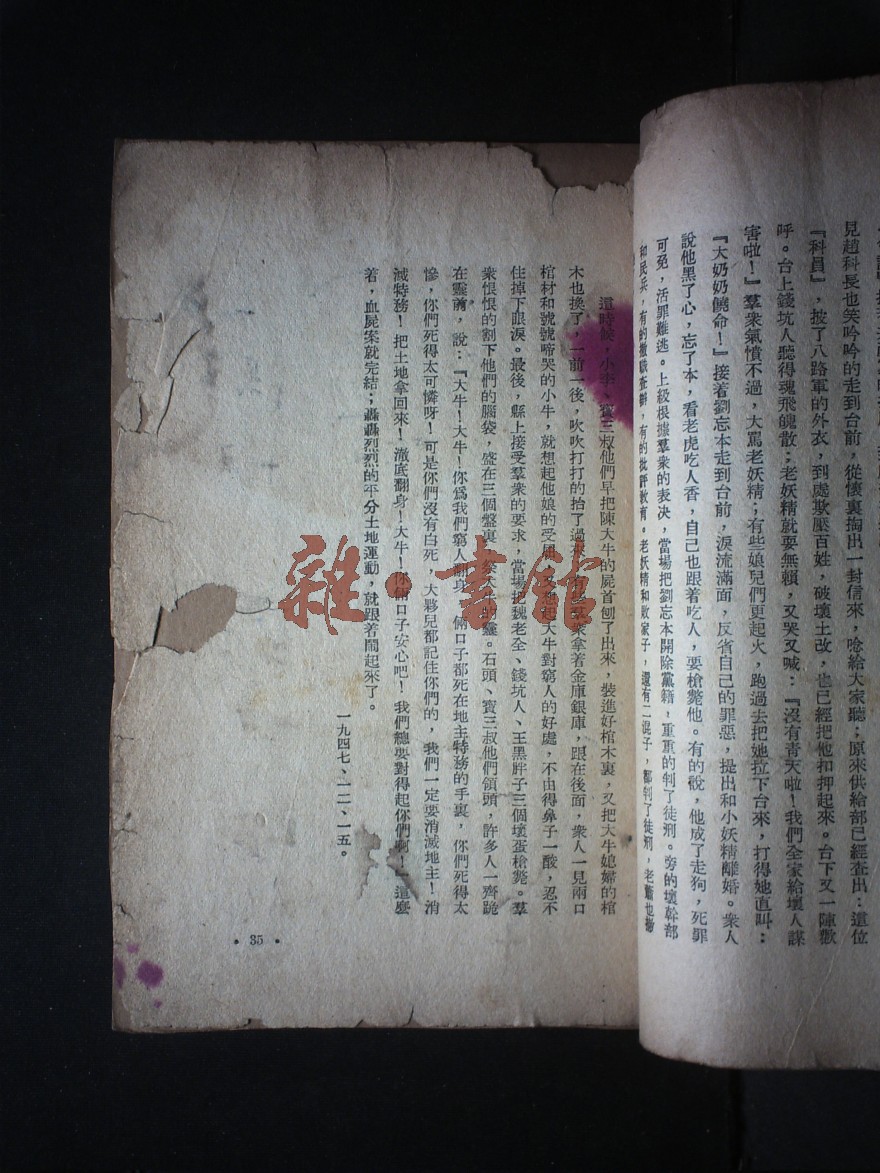 見趙科長也笑吟吟的走到台前，從懷裏掏出一封信來，唸給大家聽；原來供給部已經查出：這位
『科員』，披了八路軍的外衣，到處欺壓百姓，破壞土改，也已經把他扣押起來。台下又一陣歡
呼。台上錢坑人聽得魂飛魄散；老妖精就要無賴，又哭又喊：『沒有青天啦！我們全家給壞人謀
害啦！』羣衆氣憤不過，大罵老妖精；有些娘兒們更起火，跑過去把她拉下台來，打得她直叫：
『大奶奶饒命！』接着劉忘本走到台前，淚流滿面，反省自己的罪惡，提出和小妖精離婚。衆人
說他黑了心，忘了本，看老虎吃人香，自己也跟着吃人，要槍斃他。有的說，他成了走狗，死罪
可免，活罪難逃。上級根據羣衆的表决，當場把劉忘本開除黨籍，重重的判了徒刑。旁的壞幹部
和民兵，有的撤職查辦，有的批評教育。老妖精和敗家子，還有二混子，都判了徒刑，老蕭也
這時候，小李、寶三叔他們早把陳大牛的屍首刨了出來，裝進好棺木裏，又把大牛媳婦的棺
木也換了，一前一後，吹吹打打的抬了過來，有些羣衆拿着金庫銀庫，跟在後面，衆人一見兩口
棺材和號號啼哭的小牛，就想起他娘的受屈，又想起大牛對窮人的好處，不由得鼻子一酸，忍不
住掉下眼淚。最後，縣上接受羣衆的要求，當場把魏老全、錢坑人、王黑胖子三個壞蛋槍斃。羣
衆恨恨的割下他們的腦袋，盛在三個盤裏，祭大牛的靈。石頭、寶三叔他們領頭，許多人一齊跪
在靈前，說：『大牛！大牛！你爲我們窮人翻身，倆口子都死在地主特務的手裏，你們死得太
慘，你們死得太可憐呀！可是你們沒有白死，大夥兒都記住你們的，我們一定要消滅地主！消
滅特務！把土地拿回來！澈底翻身！大牛！你倆口子安心吧！我們總要對得起你們啊！』這麼
着，血屍案就完結；轟轟烈烈的平分土地運動，就跟着鬧起來了。
一九四七、一二、一五。
• 35 •
雜·書館